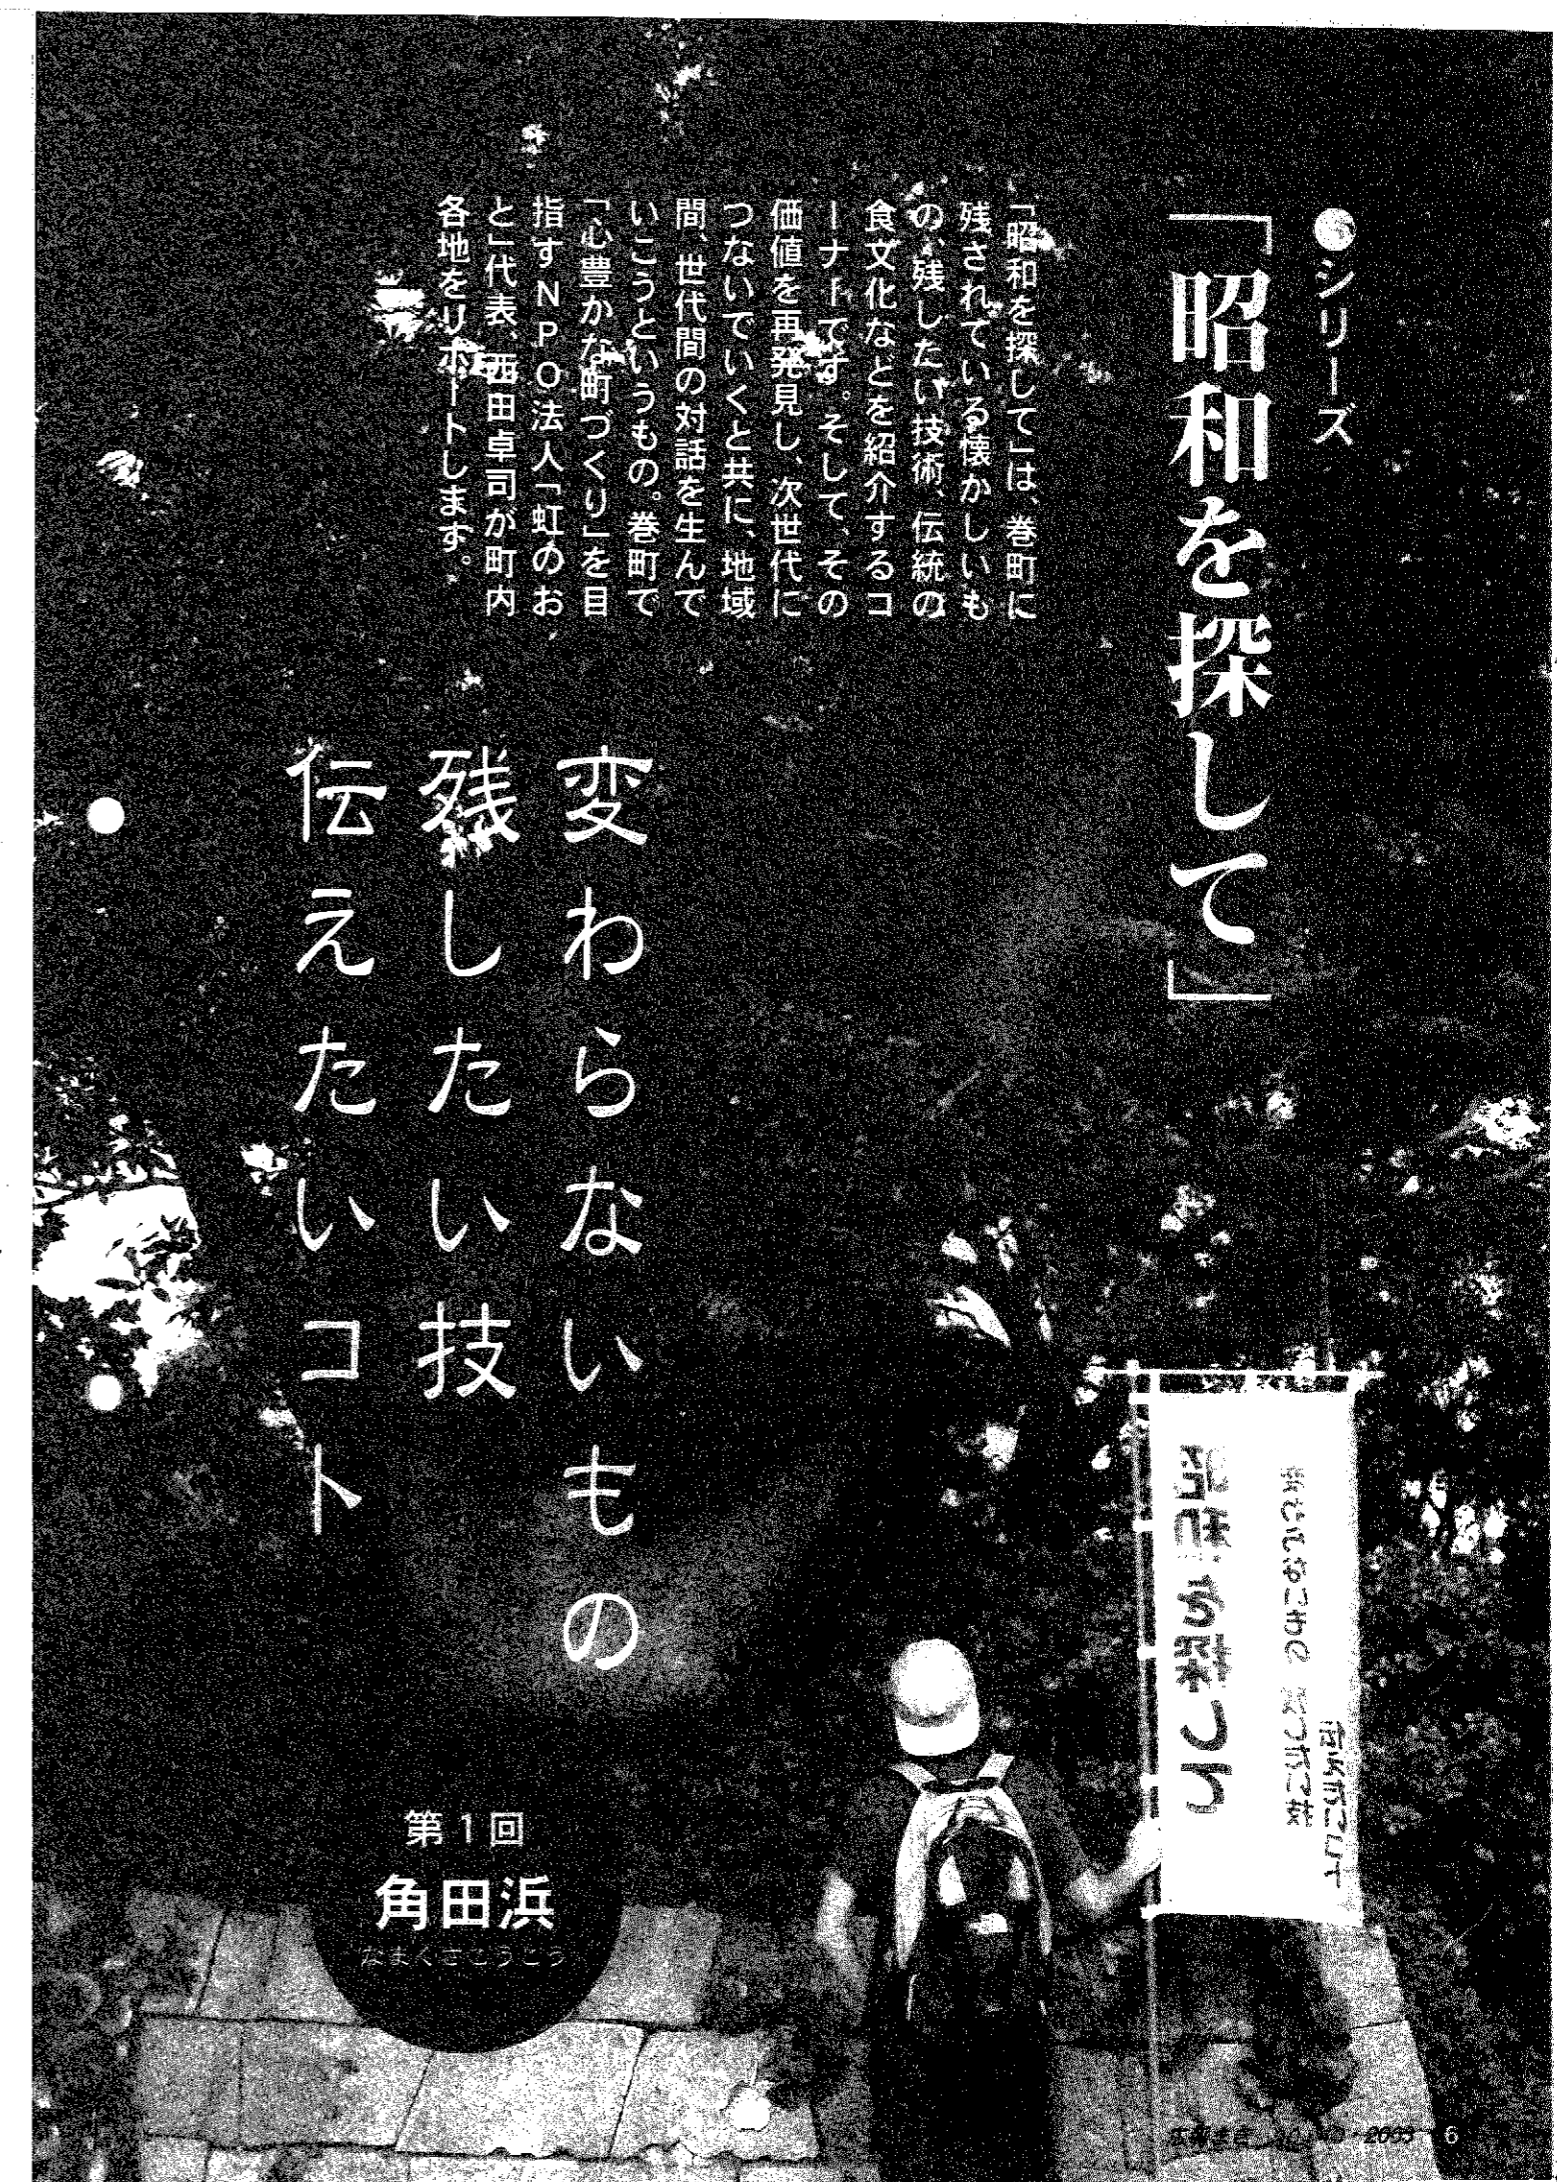 ●シリーズ
「昭和を探して」
「昭和を探して」は、巻町に
残されている懐かしいも
の、残したい技術、伝統の
食文化などを紹介するコ
ーナーです。そして、その
価値を再発見し、次世代に
つないでいくと共に、地域
間、世代間の対話を生んで
いこうというもの。巻町で
「心豊かな町づくり」を目
指すNPO法人「虹のお
と」代表、西田卓司が町内
各地をリポートします。
変わらないもの
残したい技
伝えたいコト
第1回
角田浜
なまくさこうこう
昭和を探して
変わらないもの 残したい技
伝えたいコト
2003 6